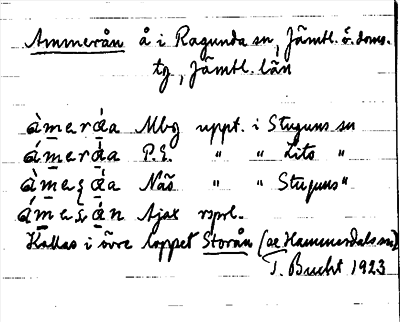 Ammerån å i Ragunda sn, Jämtl. ö. doms.
tg, Jämtl. län
àmerá̱a Mbg uppt. i Stuguns sn
ámerá̱a P.E. " " Lits "
àmeꞩá̱a Näs " " Stuguns "
ámeꞩá̱n Ajax rspr.
Kallas i övre loppet Storån (ae Hammerdals sn)
T. Bucht 1923